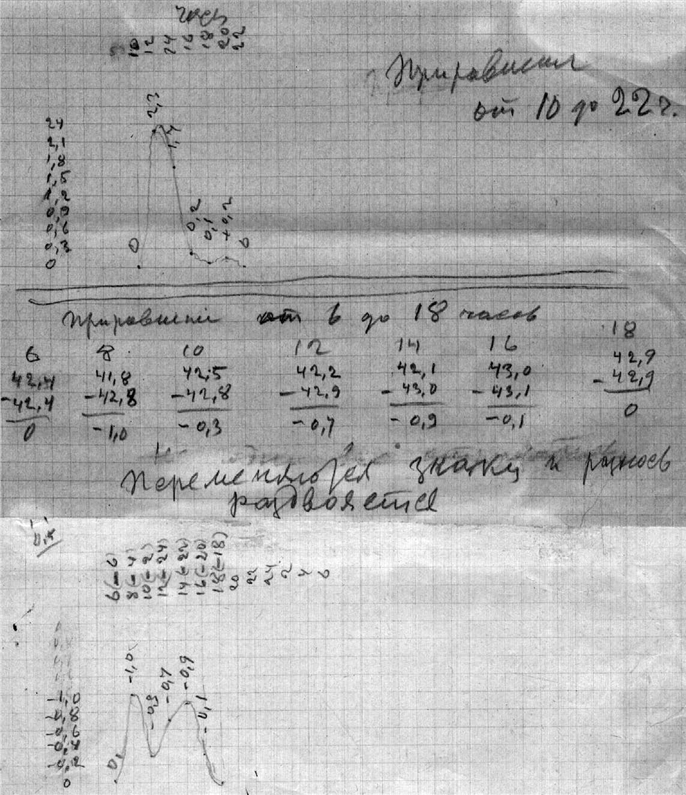 Часы
10 12 24 16 18 20 22
от 10 до 22 ч.
24
2,1
1,8
1,5
1,2
0,9
0,6
0,3
0
0 2,3 1,7 0,2 0,1 +0,2 0
от 6 до 18 часов
6 8 10 12 14 16 18
42,4 41,8 42,5 42,2 42,1 43,0 42,9
-42,4 -42,8 -42,8 -42,9 -43,0 -43,1 -42,9
0 -1,0 -0,3 -0,7 -0,9 -0,1 0
Переменяются знаки и
раздвояется
6(-6)
8(-4)
10(-2)
12(-24)
14(-22)
16(-20)
18(-18)
20
22
24
2
4
6
-1,0
0
0 -1,0 -0,3 -0,7 -0,9 -0,1